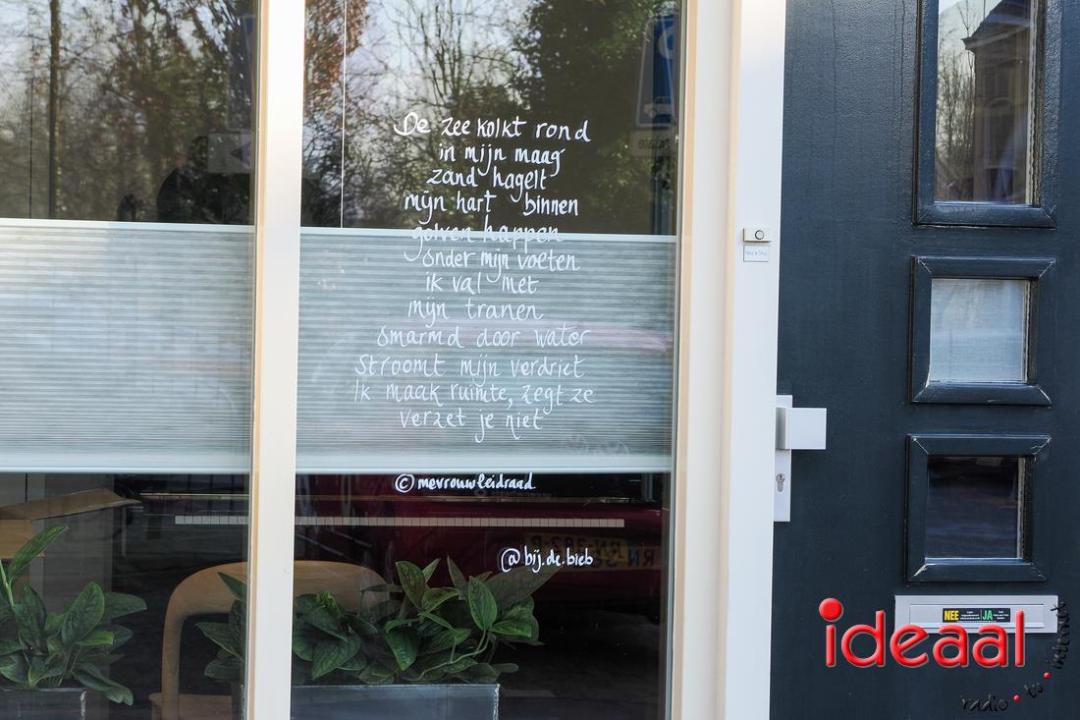 De zee kolkt rond
in mijn maag
zand hagelt
mijn hart binnen
golven happen
onder mijn voeten
ik val met
mijn tranen
omarmd door water
stroomt mijn verdriet
Ik maak ruimte, zegt ze
verzet je niet
© mevrouwleidraad
@bij.de.bieb
NEE JA
ideaal
radio tv internet